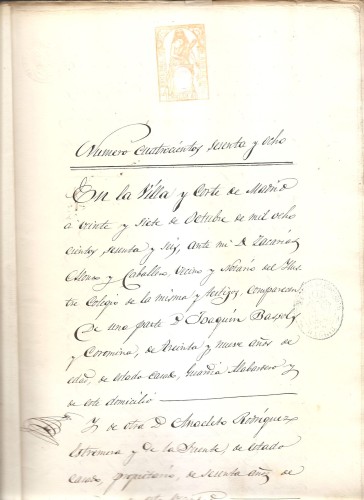 Numero cuatrocientos sesenta y ocho
En la Villa y Corte de Madrid
a veinte y siete de Octubre de mil ocho
cientos sesenta y seis, ante mi D. Zacarias
Alonso y Caballero, Vecino y Notario del Ilus
tre Colegio de la misma y testigos, comparecen:
De una parte D. Joaquin Bassols
y Coromina, de treinta y nueve años de
edad, de estado casado, Guardia Alabardero y
de este domicilio
Y de otra D. Anacleto Rodriguez
Estremera y de la Fuente, de estado
casado, propietario, de sesenta años de